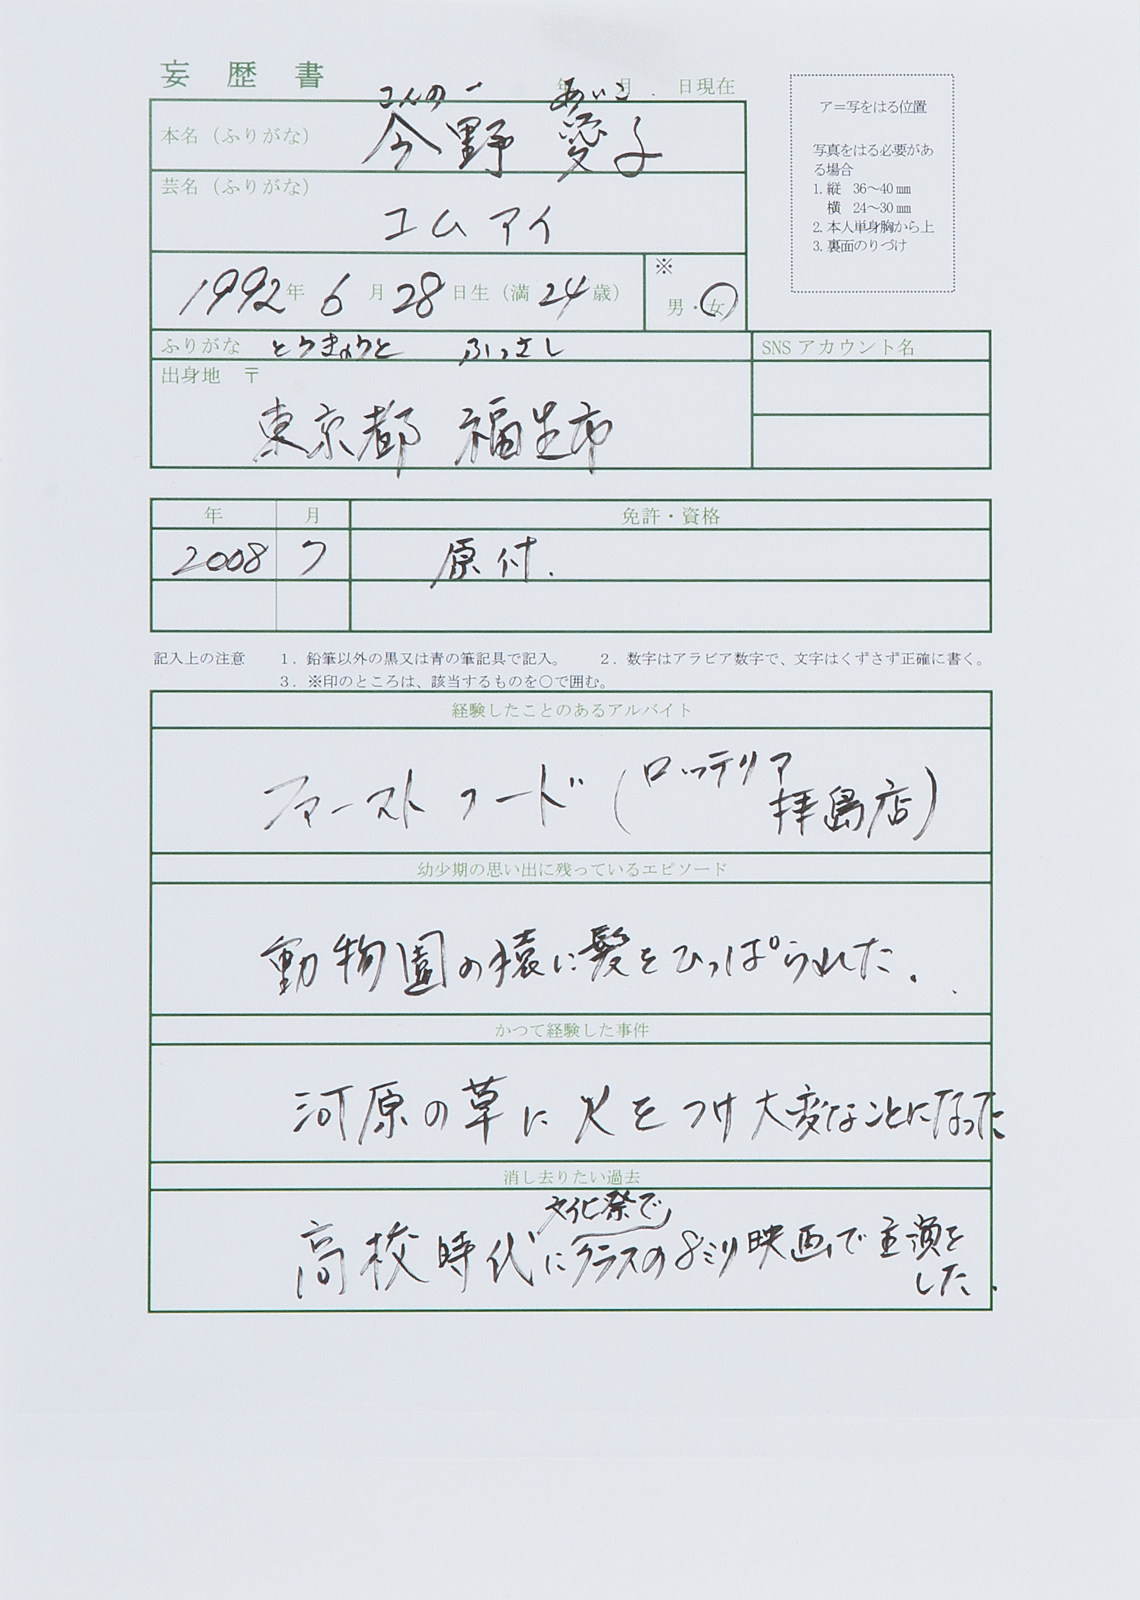 妄歴書
年 月 日現在
こんのー あいこ
本名（ふりがな） 今野 愛子
芸名（ふりがな）
コムアイ
1992年 6月 28日生（満 24歳）
※
男・女
ふりがな とうきょうと ふっさし
SNS アカウント名
出身地 〒
東京都 福生市
ア＝写をはる位置
写真をはる必要があ
る場合
1. 縦 36～40 mm
横 24～30 mm
2. 本人単身胸から上
3. 裏面のりづけ
年 月 免許・資格
2008 7 原付.
記入上の注意 1．鉛筆以外の黒又は青の筆記具で記入。 2．数字はアラビア数字で、文字はくずさず正確に書く。
3．※印のところは、該当するものを○で囲む。
経験したことのあるアルバイト
ファーストフード（ロッテリア
拝島店）
幼少期の思い出に残っているエピソード
動物園の猿に髪をひっぱられた.
かつて経験した事件
河原の草に火をつけ大変なことになった
消し去りたい過去
文化祭で
高校時代にクラスの8ミリ映画で主演を
した.